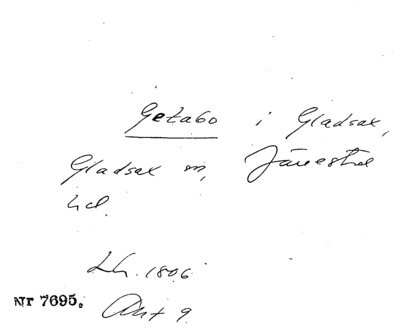 Getabo i Gladsax,
Gladsax sn, Järrestad
hd.
Lh. 1806
Nr 7695. Akt 9